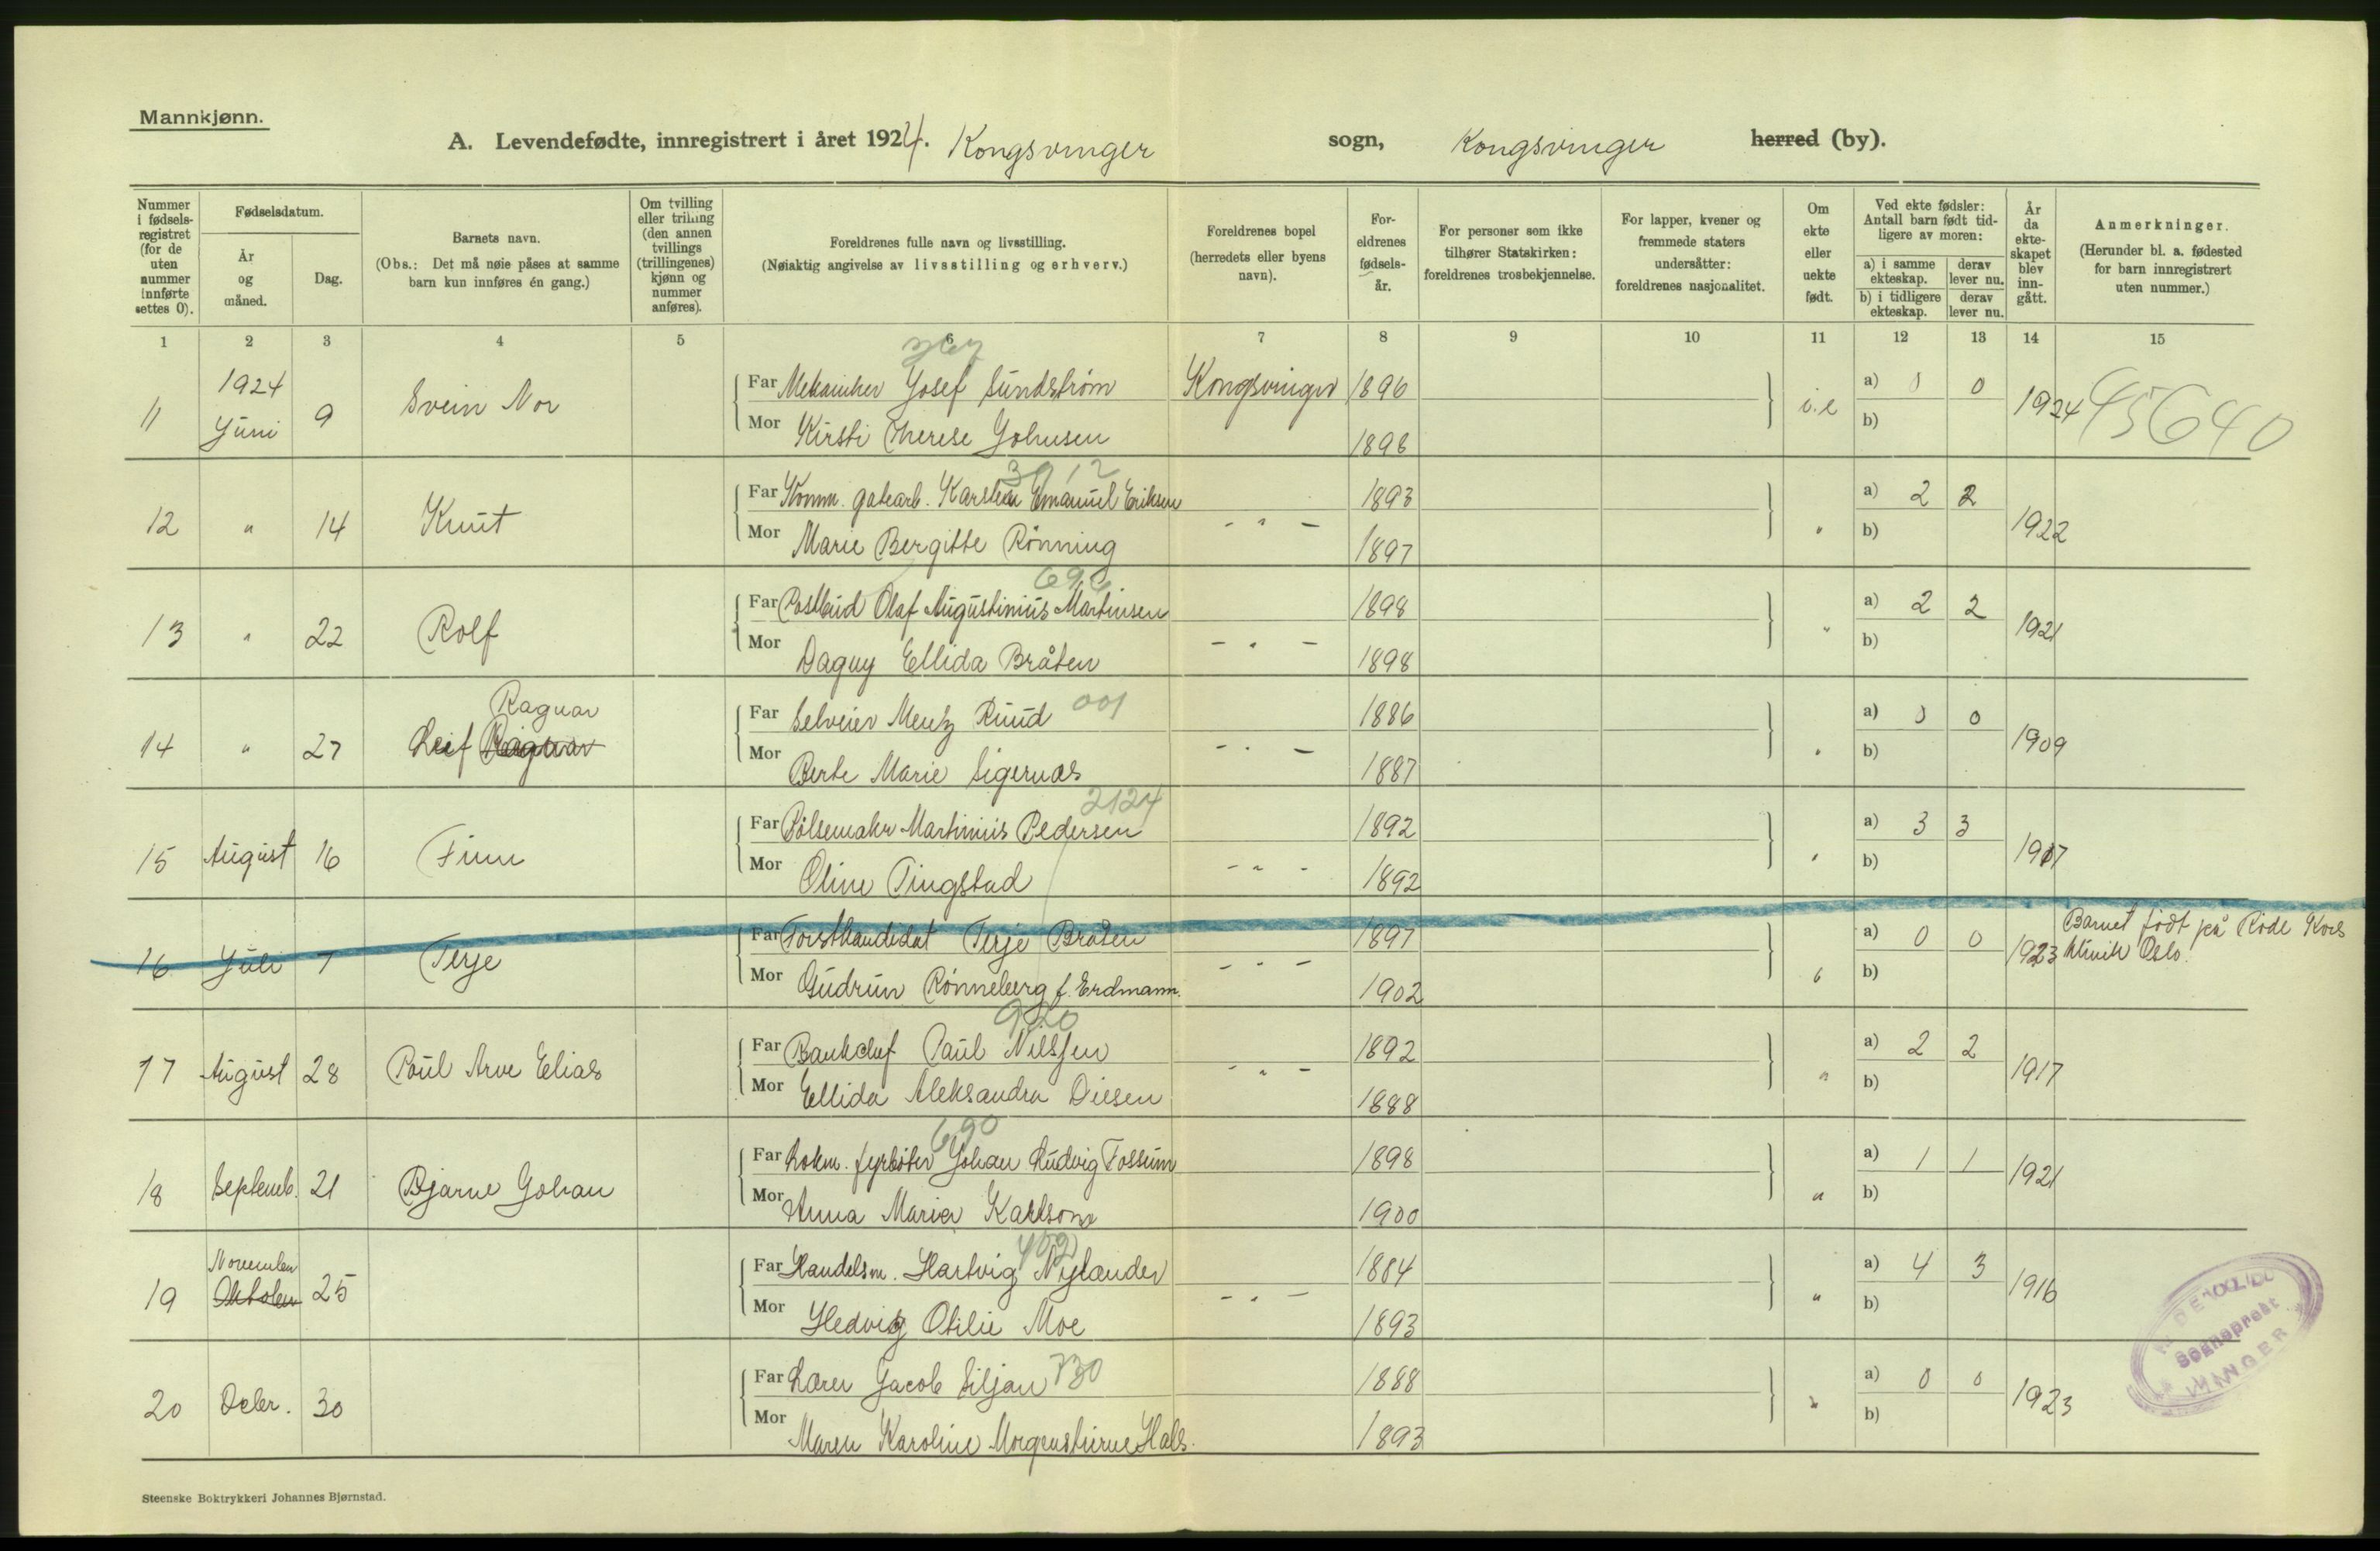 Mannkjønn.
A. Levendefødte, innregistrert i året 1924. Kongsvinger sogn, Kongsvinger herred (by).
Nummer i fødselsregistret (for de uten nummer innførte settes 0).
Fødselsdatum.
År og måned.
Dag.
Barnets navn.
(Obs.: Det må nøie påses at samme barn kun innføres én gang.)
Om tvilling eller trilling (den annen tvillings (trillingenes) kjønn og nummer anføres).
Foreldrenes fulle navn og livsstilling.
(Nøiaktig angivelse av livsstilling og erhverv.)
Foreldrenes bopel (herredets eller byens navn).
Foreldrenes fødselsår.
For personer som ikke tilhører Statskirken: foreldrenes trosbekjennelse.
For lapper, kvener og fremmede staters undersåtter: foreldrenes nasjonalitet.
Om ekte eller uekte født.
Ved ekte fødsler: Antall barn født tidligere av moren:
a) i samme ekteskap. derav lever nu.
b) i tidligere ekteskap. derav lever nu.
År da ekteskapet blev inngått.
Anmerkninger.
(Herunder bl. a. fødested for barn innregistrert uten nummer.)
1 2 3 4 5 6 7 8 9 10 11 12 13 14 15
11 1924 Juni 9 Svein Nor
Far Mekaniker Josef Sundstrøm Kongsvinger 1896 a) 0 0
Mor Kirsti Therese Johnsen 1898 i.e b) 1924 45640
3912
12 " 14 Knut
Far Komm. gatearb. Karsten Emanuel Eriksen 1893 a) 2 2
Mor Marie Bergitte Rønning - " - 1897 " b) 1922
13 " 22 Rolf
Far Postbud Olaf Augustinius Martinsen 1898 a) 2 2
Mor Dagny Ellida Bråten - " - 1898 " b) 1921
14 " 27 Leif Ragnar Ragnar
Far Selveier Mentz Ruud 001 1886 a) 0 0
Mor Berte Marie Sigernæs - " - 1887 " b) 1909
2124
15 August 16 Finn
Far Pølsemaker Martinius Pedersen 1892 a) 3 3
Mor Oline Tingstad - " - 1892 " b) 1917
16 Juli 7 Terje
Far Forstkandidat Terje Bråten 1897 a) 0 0 Barnet født på Røde Kors
Mor Gudrun Rønneberg f. Erdmann. - " - 1902 " b) 1923 klinik Oslo.
920
17 August 28 Poul Arve Elias
Far Bankchef Paul Nilssen 1892 a) 2 2
Mor Ellida Aleksandra Diesen - " - 1888 " b) 1917
690
18 Septemb. 21 Bjarne Johan
Far Lokm. fyrbøter Johan Ludvig Fossum 1898 a) 1 1
Mor Anna Maria Karlsone 1900 " b) 1921
19 November Oktober 25
Far Handelsm. Hartvig Nylander 1884 a) 4 3
Mor Hedvig Otilie Moe - " - 1893 " b) 1916
20 Decbr. 30
Far Lærer Jacob Siljan 730 1888 a) 0 0
Mor Maren Karoline Morgenstierne Hals. 1893 " b) 1923
Sogneprest
Steenske Boktrykkeri Johannes Bjørnstad.